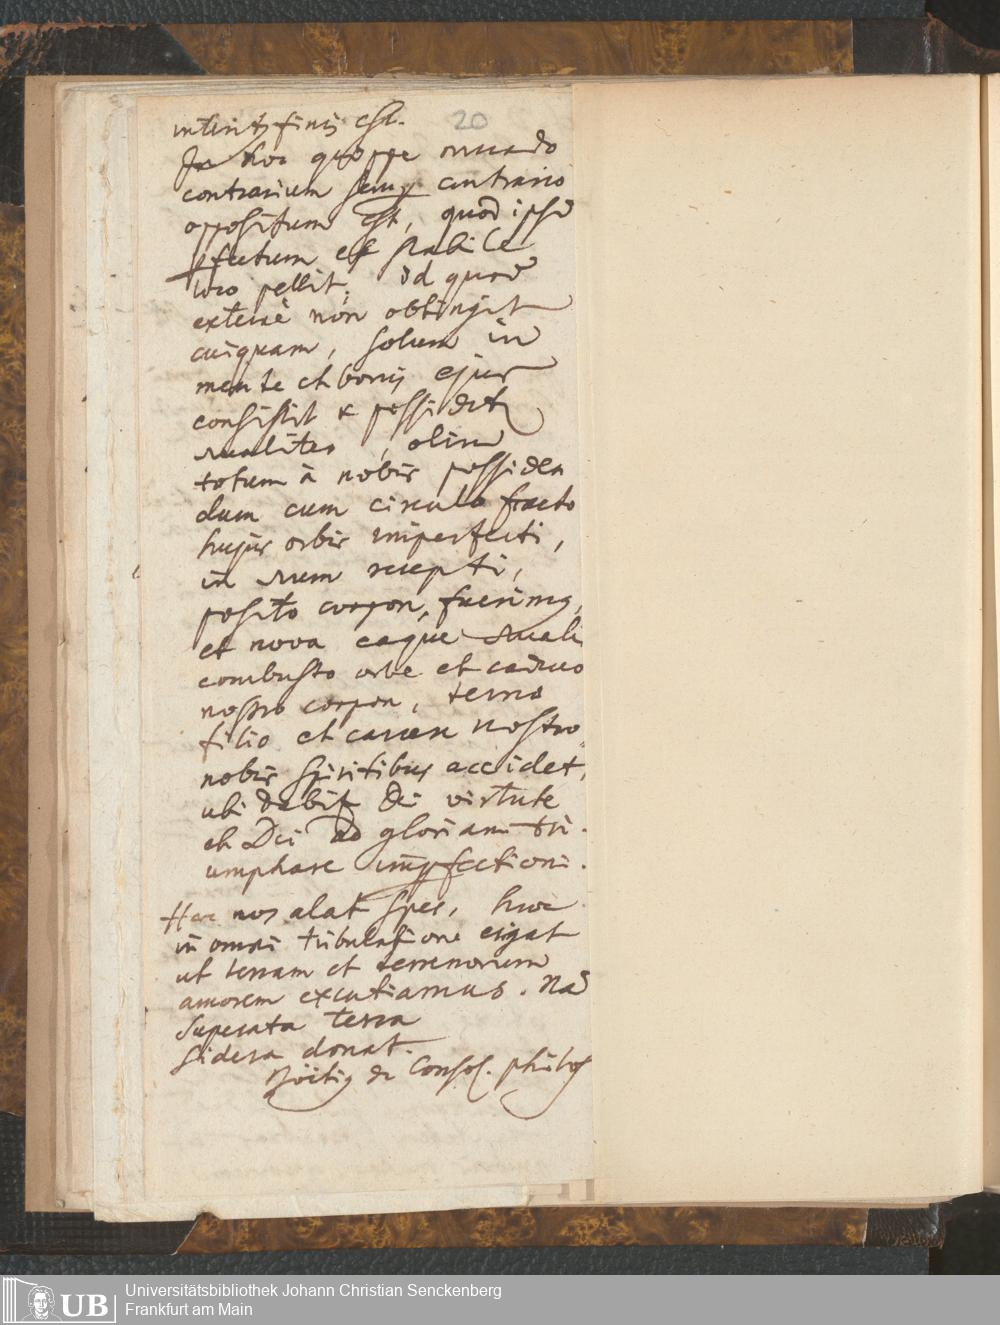 20
finis est.
In hoc quippe mundo
contrarium semper contrario
oppositum est, quod ipsū
et stabile
loco pellit; id quod
externè non obtingit
cuiquam, solum in
mente et bonis ejus
consistit & possidetur
realiter, olim
totum à nobis possiden
dum cum circulo fracto
hujus orbis imperfecti,
in recepti,
posito corpore, fuerimus,
et nova eaque
combusto orbe et caduco
nostro corpore, terræ
filio et carcere nostro,
nobis spiritibus accidet,
ubi dabitur Dei virtute
et Dei ad gloriam tri-
umphare imperfectioni.
Hæc nos alat spes, hæc
in omni tribulatione erigat
ut terram et terrenorum
amorem excutiamus. Nā
Superata terra
Sidera donat.
Boëtius de Consol. philos
UB
Universitätsbibliothek Johann Christian Senckenberg
Frankfurt am Main